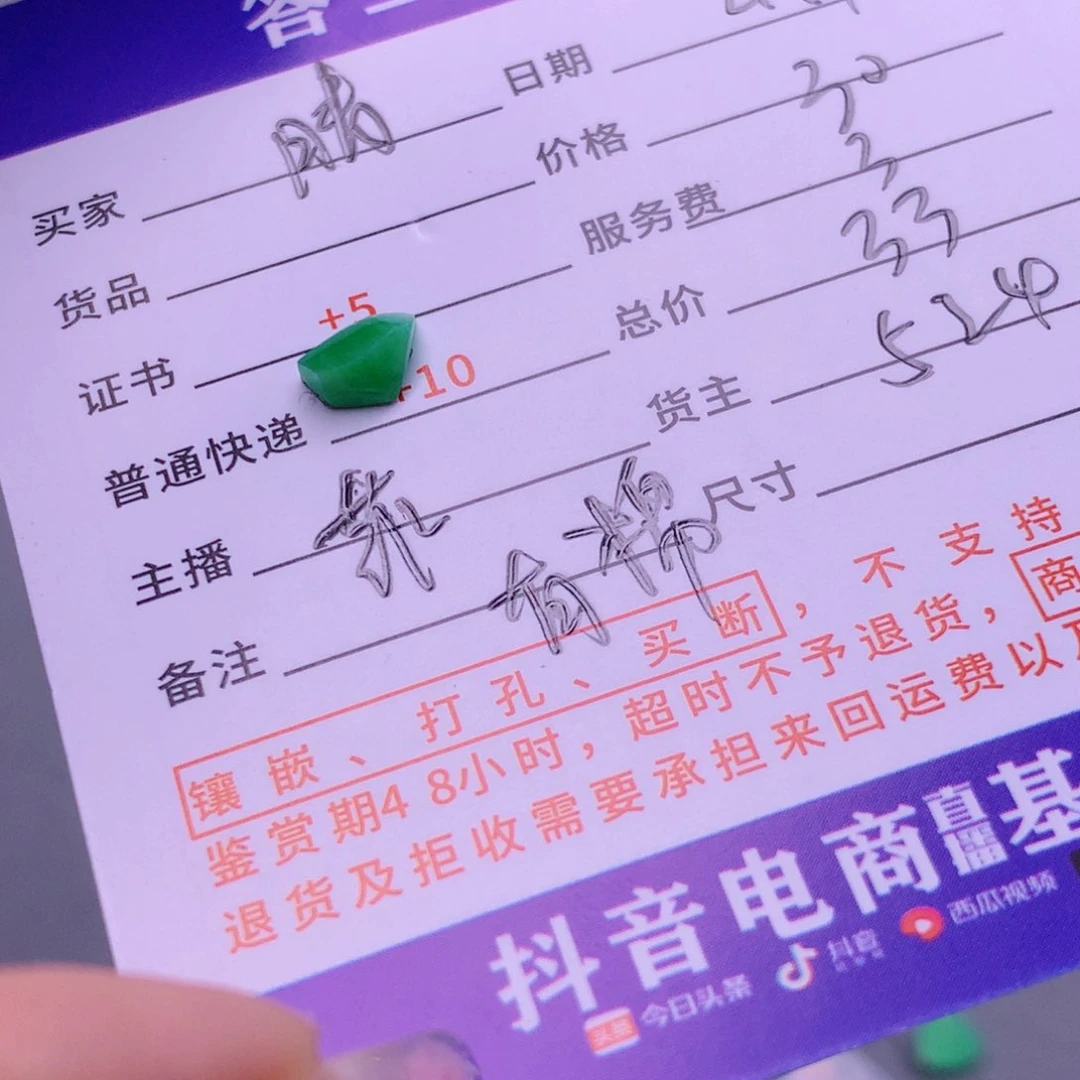 买家 晴 日期
货品 价格 30
证书 +5 服务费 3
普通快递 +10 总价 33
主播 货主 524
备注 有棉 尺寸
镶嵌、打孔、买断，不支持
鉴赏期48小时，超时不予退货，商
退货及拒收需要承担来回运费以及
抖音电商直播基
头条 今日头条 抖音 西瓜视频